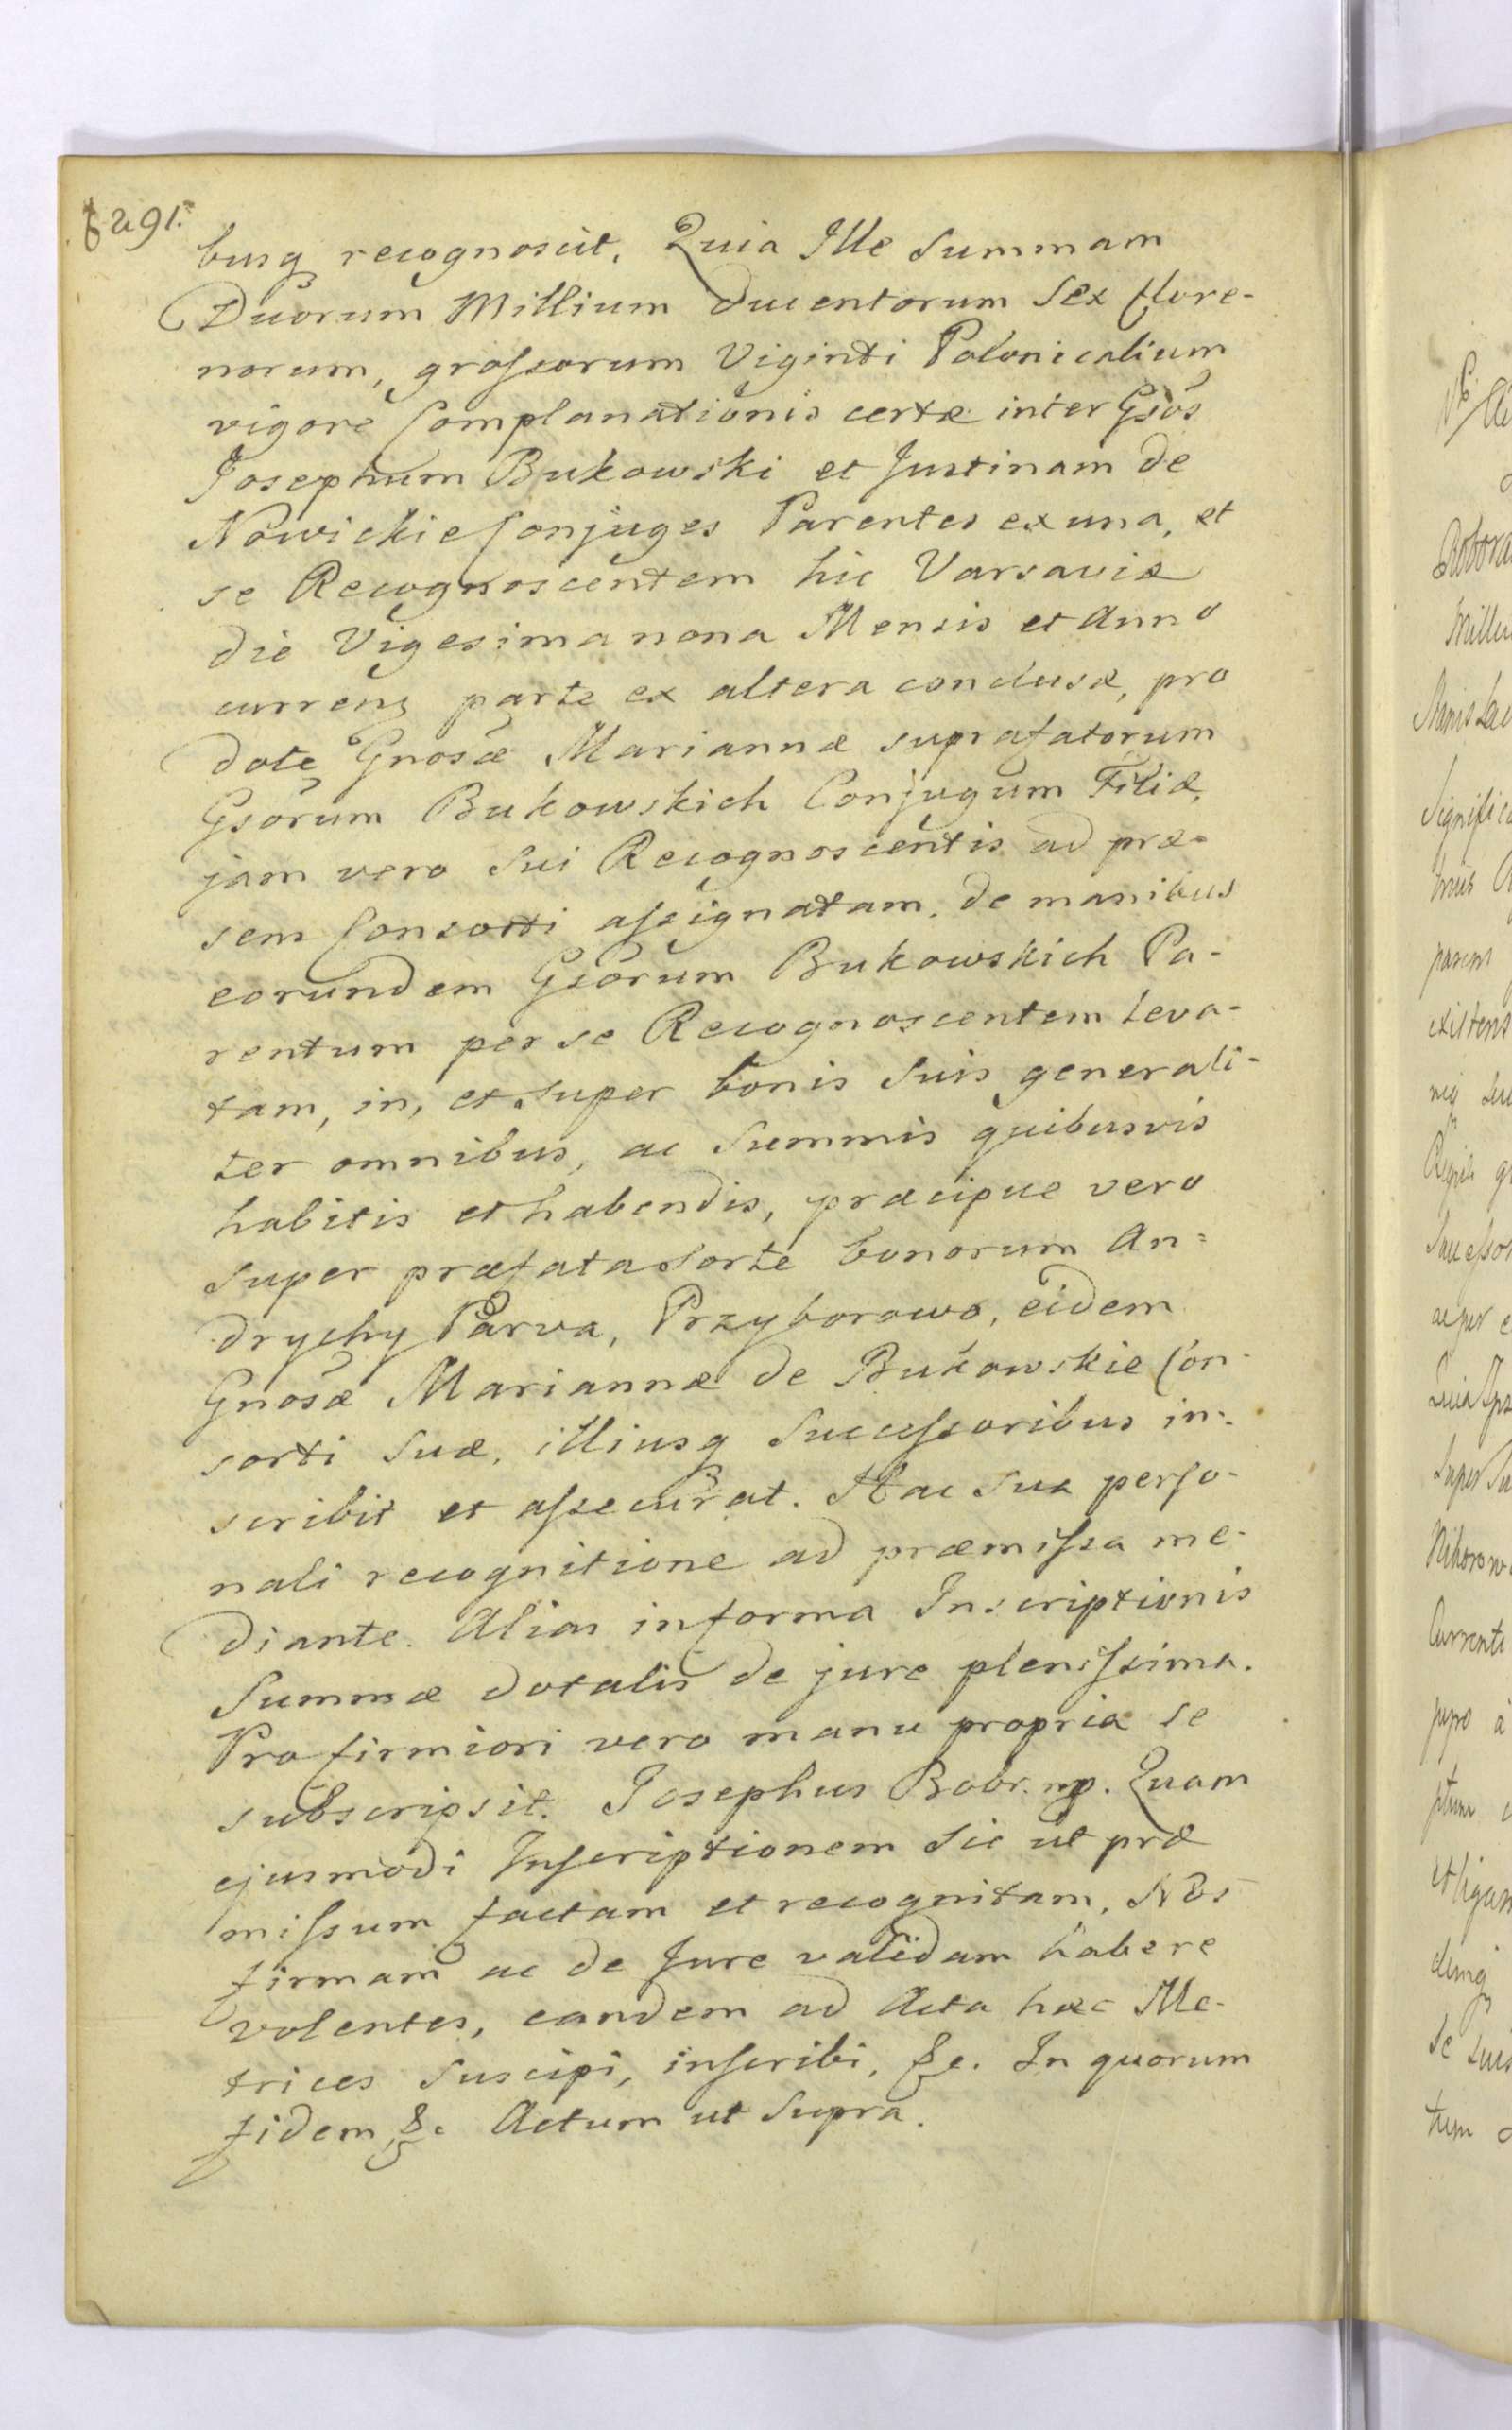 291.
busq recognoscit. Quia Ille Summam
Duorum Millium Ducentorum Sex flore-
norum, grossorum Viginti Polonicalium
vigore Complanationis certæ inter Gsos
Josephum Bukowski et Justinam de
Nowickie Conjuges Parentes ex una, et
se Recognoscentem hic Varsaviæ
die Vigesima nona Mensis et Anno
curreng parte ex altera conclusæ, pro
dote Gnosæ Mariannæ suprafatorum
Gsorum Bukowskich Conjugum Filiæ,
jam vero Sui Recognoscentis ad præ-
sens Consorti assignatam, de manibus
eorundem Gsorum Bukowskich Pa-
rentum per se Recognoscentem Leva-
tam, in, et super bonis Suis generali-
ter omnibus, ac Summis quibusvis
habitis et habendis, præcipue vero
Super præfata Sorte bonorum An=
drychy Parva, Przyborowo, eidem
Gnosæ Mariannæ de Bukowskie Con-
sorti Suæ, illiusq Successoribus in-
scribit et assecurat. Hac Sua perso-
nali recognitione ad præmissa me-
diante. Alias in forma Inscriptionis
Summæ dotalis de jure plenissima.
Pro firmiori vero manu propria se
subscripsit. Josephus Bobr. mp. Quam
ejusmodi Inscriptionem Sic ut præ
missum factam et recognitam, Nos
firmam ac de Jure validam habere
volentes, eandem ad Acta hæc Me-
trices Suscipi, inscribi, &c. In quorum
fidem &c Actum ut Supra.
Significa
parem
existens
Currenti